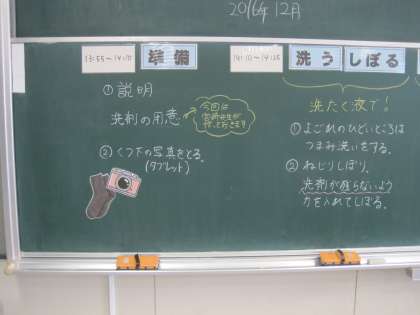 2016年12月
13:55~14:10
準備
①説明
洗剤の用意
今回は
②くつ下の写真をとる。
(タブレット)
14:10~14:25
洗う
しぼる
洗たく液で!
①よごれのひどいところは
つまみ洗いをする。
②ねじりしぼり。
洗剤が残らないよう
力を入れてしぼる。